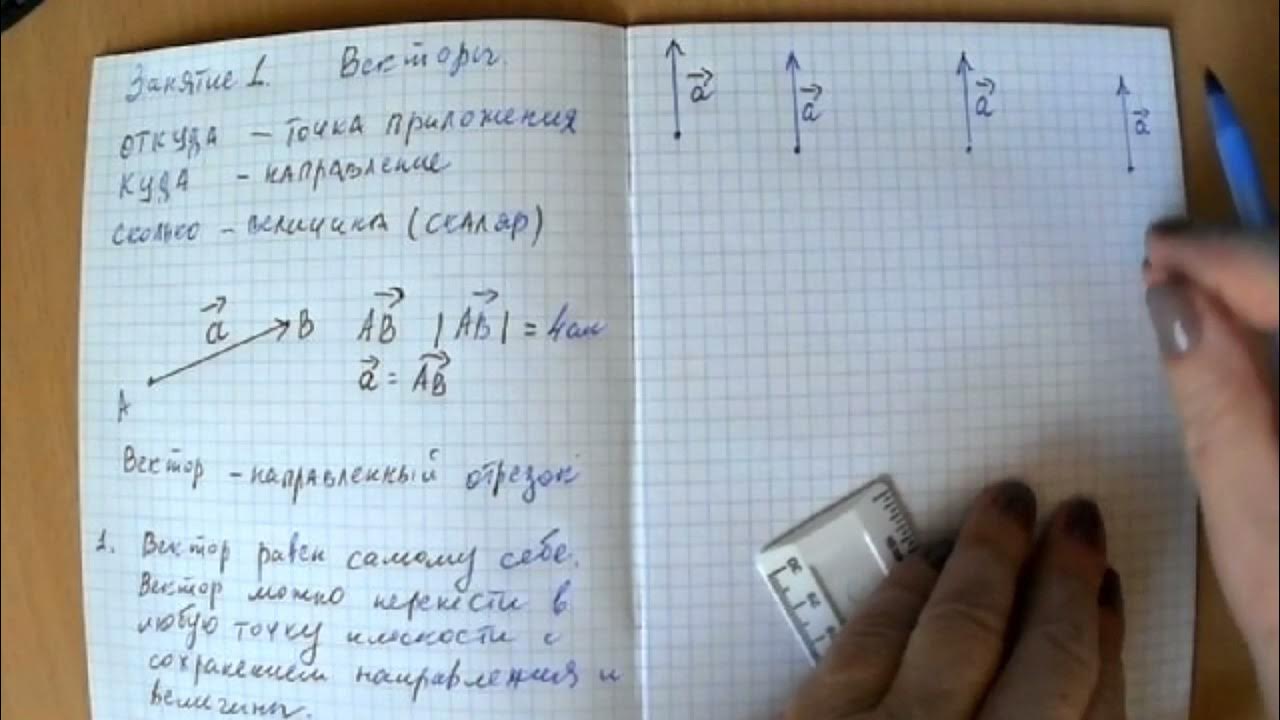 Занятие 1. Векторы.
откуда – точка приложения
куда – направление
сколько – величина (скаляр)
a⃗ B AB⃗ |AB⃗| = 4см
A a⃗ = AB⃗
Вектор – направленный отрезок
1. Вектор равен самому себе.
Вектор можно перенести в
любую точку плоскости с
сохранением направления и
величины.
a⃗ a⃗ a⃗ a⃗